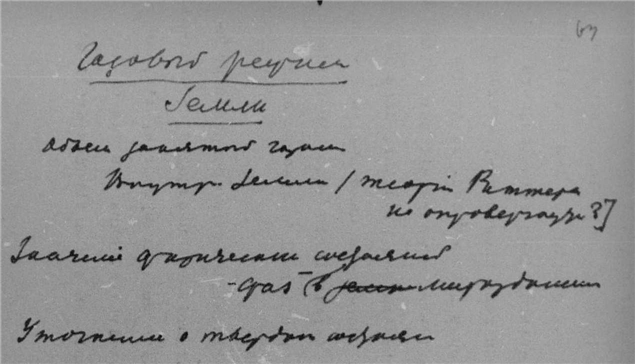 69
Газовый режим
Земли
Объем занятой газами
Внутр. Земли / теорія Риттера
не опровергнута?]
Значеніе физических состояній
-фаз (в мироздании
Уточнение о твердом состоянии